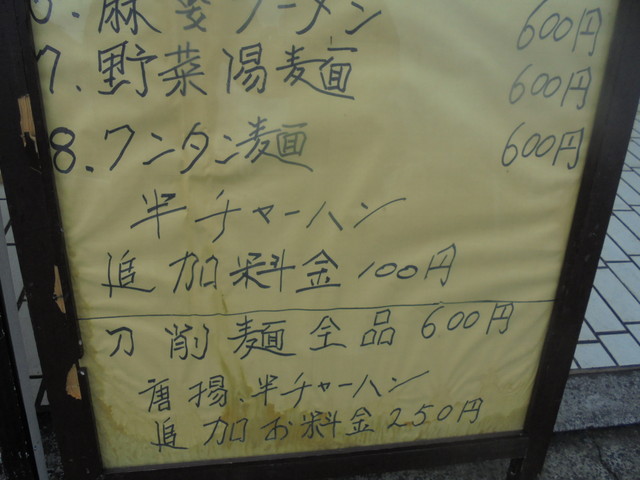 麻婆ラーメン 600円
7.野菜湯麺 600円
8.ワンタン麺 600円
半チャーハン
追加料金100円
刀削麺全品600円
唐揚、半チャーハン
追加お料金250円